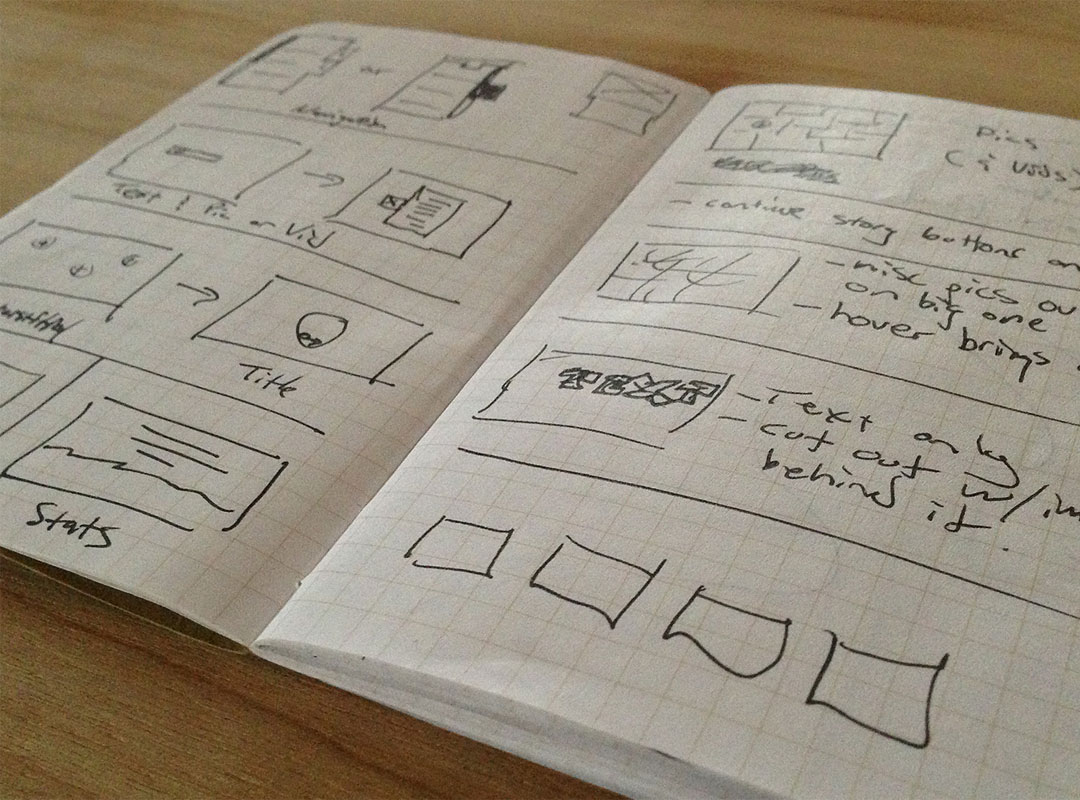 or
Navigation
Text & Pic or Vid
Title
Stats
Pics
(& vids)
- continue story buttons on
- misc pics ou
on big one
- hover brings
- Text only
- cut out w/ im
behind it.